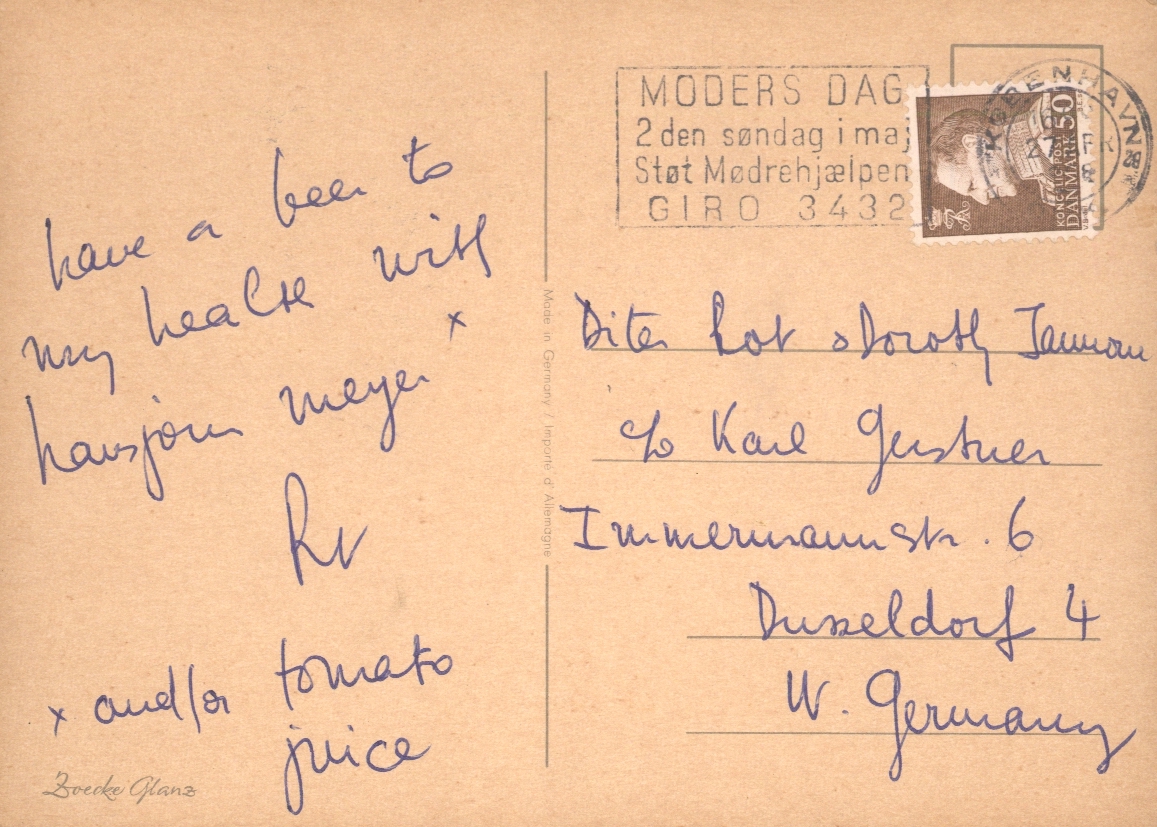 have a beer to
my healte with
hansjörn meyer x
RV
x and/or tomato
juice
Zoecke Glanz
Made in Germany / Importé d'Allemagne
MØDERS DAG
2 den søndag i maj
Støt Mødrehjælpen
GIRO 3432
KØBENHAVN
KONGELIG POST
DANMARK 50
Diter Rot + Doroth Iannon
c/o Karl Gerstner
Immermannstr. 6
Dusseldorf 4
W. Germany